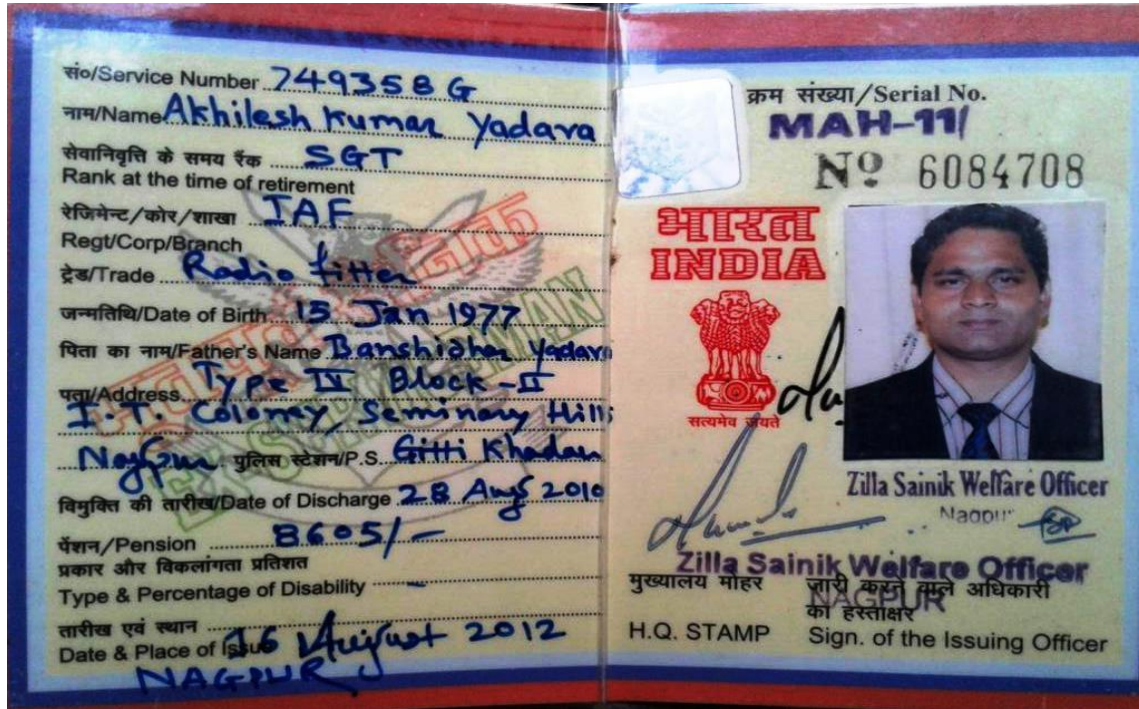 सं०/Service Number 749358 G
नाम/Name Akhilesh Kumar Yadava
सेवानिवृत्ति के समय रैंक SGT
Rank at the time of retirement
रेजिमेन्ट/कोर/शाखा IAF
Regt/Corp/Branch
ट्रेड/Trade Radio fitter
जन्मतिथि/Date of Birth 15 Jan 1977
पिता का नाम/Father's Name Banshidhar Yadava
पता/Address Type IV Block-II
I.T. Coloney, Seminary Hills
Nagpur पुलिस स्टेशन/P.S. Gitti Khadan
विमुक्ति की तारीख/Date of Discharge 28 Aug 2010
पेंशन/Pension 8605/-
प्रकार और विकलांगता प्रतिशत
Type & Percentage of Disability -
तारीख एवं स्थान
Date & Place of Issue 16 August 2012
NAGPUR
भूतपूर्व सैनिक
EX-SERVICEMAN
क्रम संख्या/Serial No.
MAH-11/
Nº 6084708
भारत
INDIA
सत्यमेव जयते
Zilla Sainik Welfare Officer
Nagpur
Zilla Sainik Welfare Officer
NAGPUR
मुख्यालय मोहर
H.Q. STAMP
जारी करने वाले अधिकारी
का हस्ताक्षर
Sign. of the Issuing Officer